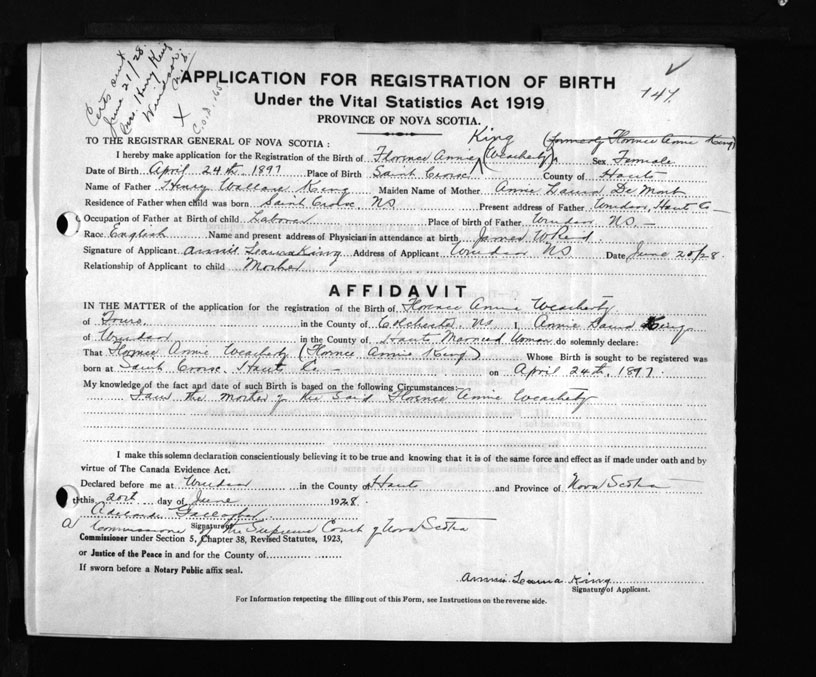 Certs sent
June 21/28
Mrs. Henry King
Windsor,
N.S.
X
C.O.D. 165
147.
APPLICATION FOR REGISTRATION OF BIRTH
Under the Vital Statistics Act 1919
PROVINCE OF NOVA SCOTIA.
TO THE REGISTRAR GENERAL OF NOVA SCOTIA: King (formerly Florence Annie King)
I hereby make application for the Registration of the Birth of Florence Annie (Weatherby) Sex Female
Date of Birth April 24th 1897 Place of Birth Saint Croix County of Hants
Name of Father Henry Wallace King Maiden Name of Mother Annie Laura De Mont
Residence of Father when child was born Saint Croix, NS Present address of Father Windsor, Hants Co
Occupation of Father at Birth of child Laborer Place of birth of Father Windsor N.S.
Race English Name and present address of Physician in attendance at birth James W Reid
Signature of Applicant Annie Leama King Address of Applicant Windsor NS Date June 20/28.
Relationship of Applicant to child Mother
AFFIDAVIT
IN THE MATTER of the application for the registration of the Birth of Florence Annie Weatherby
of Truro. in the County of Colchester NS I, Annie Laura King
of Windsor in the County of Hants Married Woman do solemnly declare:
That Florence Annie Weatherby (Florence Annie King) Whose Birth is sought to be registered was
born at Saint Croix, Hants Co on April 24th, 1897.
My knowledge of the fact and date of such Birth is based on the following Circumstances:
I am the mother of the said Florence Annie Weatherby
I make this solemn declaration conscientiously believing it to be true and knowing that it is of the same force and effect as if made under oath and by
virtue of The Canada Evidence Act.
Declared before me at Windsor in the County of Hants and Province of Nova Scotia
this 20th day of June 1928.
Signature of
a Commissioner of the Supreme Court of Nova Scotia
Commissioner under Section 5, Chapter 38, Revised Statutes, 1923,
or Justice of the Peace in and for the County of
If sworn before a Notary Public affix seal.
Annie Leama King
Signature of Applicant.
For Information respecting the filling out of this Form, see Instructions on the reverse side.